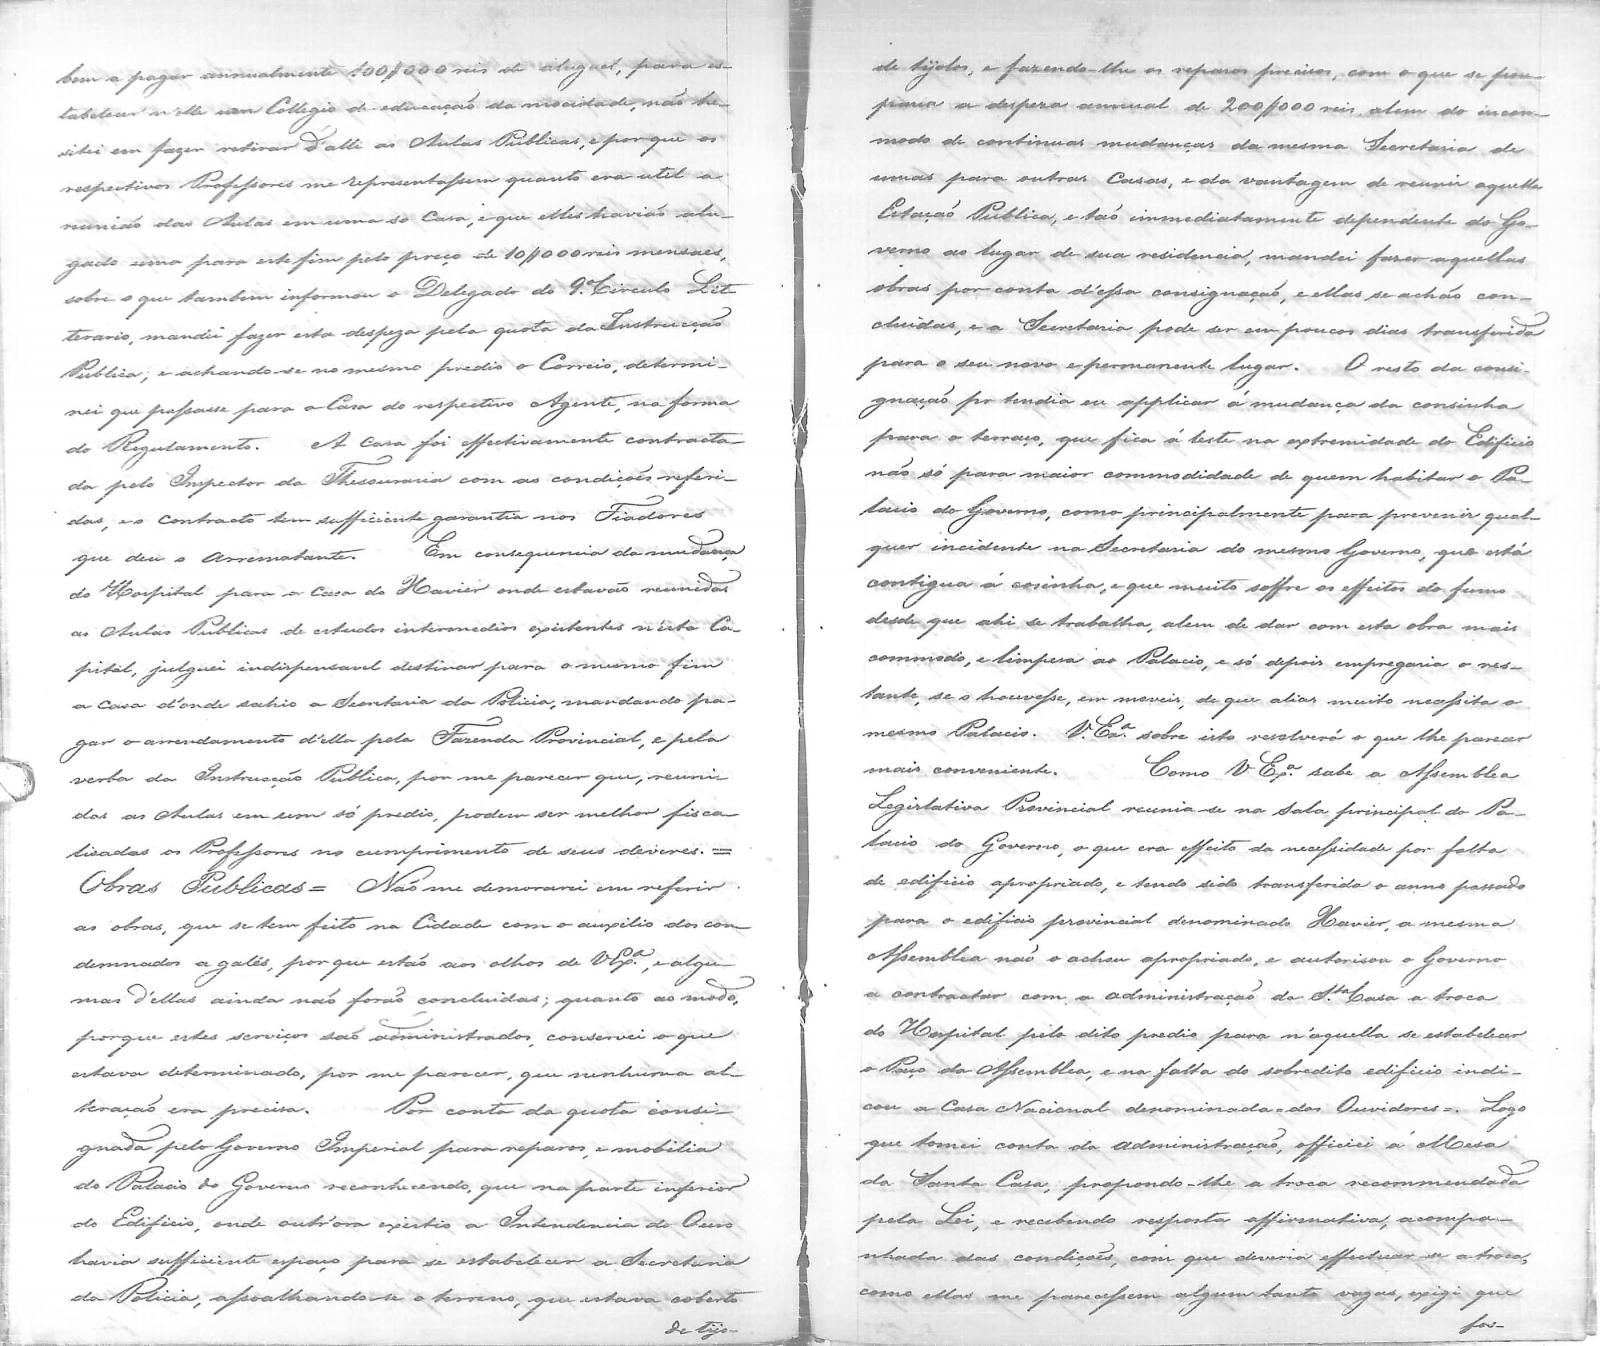 bem a pagar annualmente 400$000 reis de aluguel, para es-
tabelecer n'elle um Collegio de educação da mocidade, não he-
sitei em fazer retirar d'alli as Aulas Publicas, e porque os
respectivos Professores me representassem quanto era util a
reunião das Aulas em uma só Casa, e que elles havião alu-
gado uma para este fim pelo preço de 10$000 reis mensaes,
sobre o que tambem informou o Delegado do 9º Circulo Lit-
terario, mandei fazer esta despeza pela quota da Instrucção
Publica; e achando-se no mesmo predio o Correio, determi-
nei que passasse para a Casa do respectivo Agente, na forma
do Regulamento. A Casa foi effectivamente contracta-
da pelo Inspector da Thesouraria com as condições referi-
das, e o contracto tem sufficiente garantia nos Fiadores
que deu o arrematante. Em consequencia da mudança
do Hospital para a Casa do Xavier onde estavão reunidas
as Aulas Publicas de estudos intermedios existentes n'esta Ca-
pital, julguei indispensavel destinar para o mesmo fim
a Casa d'onde sahio a Secretaria da Policia, mandando pa-
gar o arrendamento d'ella pela Fazenda Provincial, e pela
verba da Instrucção Publica, por me parecer que, reuni-
das as Aulas em um só predio, podem ser melhor fisca-
lisadas os Professores no cumprimento de seus deveres. =
Obras Publicas = Não me demorarei em referir
as obras, que se tem feito na Cidade com o auxilio dos con-
demnados a galés, porque estão aos olhos de V.Exª, e algu-
mas d'ellas ainda não forão concluidas; quanto ao modo,
porque estes serviços são administrados, conservei o que
estava determinado, por me parecer, que nenhuma al-
teração era precisa. Por conta da quota consi-
gnada pelo Governo Imperial para reparos, e mobilia
do Palacio do Governo reconhecendo, que na parte inferior
do Edificio, onde outr'ora existio a Intendencia do Ouro
havia sufficiente espaço para se estabelecer a Secretaria
da Policia, assoalhando-se o terreno, que estava coberto
de tijo-
de tijolos, e fazendo-lhe os reparos precisos, com o que se pou-
paria a despeza annual de 200$000 reis, alem do incom-
modo de continuas mudanças da mesma Secretaria de
umas para outras Casas, e da vantagem de reunir aquella
Estação Publica, e tão immediatamente dependente do Go-
verno ao lugar de sua residencia, mandei fazer aquellas
obras por conta d'essa consignação, e ellas se achão con-
cluidas, e a Secretaria pode ser em poucos dias transferida
para o seu novo e permanente lugar. O resto da consi-
gnação pretendia eu applicar á mudança da cosinha
para o terraço, que fica á leste na extremidade do Edificio
não só para maior commodidade de quem habitar o Pa-
lacio do Governo, como principalmente para prevenir qual-
quer incidente na Secretaria do mesmo Governo, que está
contigua á cosinha, e que muito soffre os effeitos do fumo
desde que ahi se trabalha, alem de dar com esta obra mais
commodo, e limpesa ao Palacio, e só depois empregaria o res-
tante, se o houvesse, em moveis, de que alias muito necessita o
mesmo Palacio. V.Exª. sobre isto resolverá o que lhe parecer
mais conveniente. Como V Exª. sabe a Assemblea
Legislativa Provincial reunia-se na sala principal do Pa-
lacio do Governo, o que era effeito da necessidade por falta
de edificio apropriado, e tendo sido transferida o anno passado
para o edificio provincial denominado Xavier, a mesma
Assemblea não o achou apropriado, e autorisou o Governo
a contractar com a administração da Sta Casa a troca
do Hospital pelo dito predio para n'aquella se estabelecer
o Paço da Assemblea, e na falta do sobredito edificio indi-
cou a Casa Nacional denominada = dos Ouvidores =. Logo
que tomei conta da administração, officiei á Mesa
da Santa Casa, propondo-lhe a troca recommendada
pela Lei, e recebendo resposta affirmativa, acompa-
nhada das condições, com que deveria effectuar se a troca,
como ellas me parecessem algum tanto vagas, exigi que
fos-